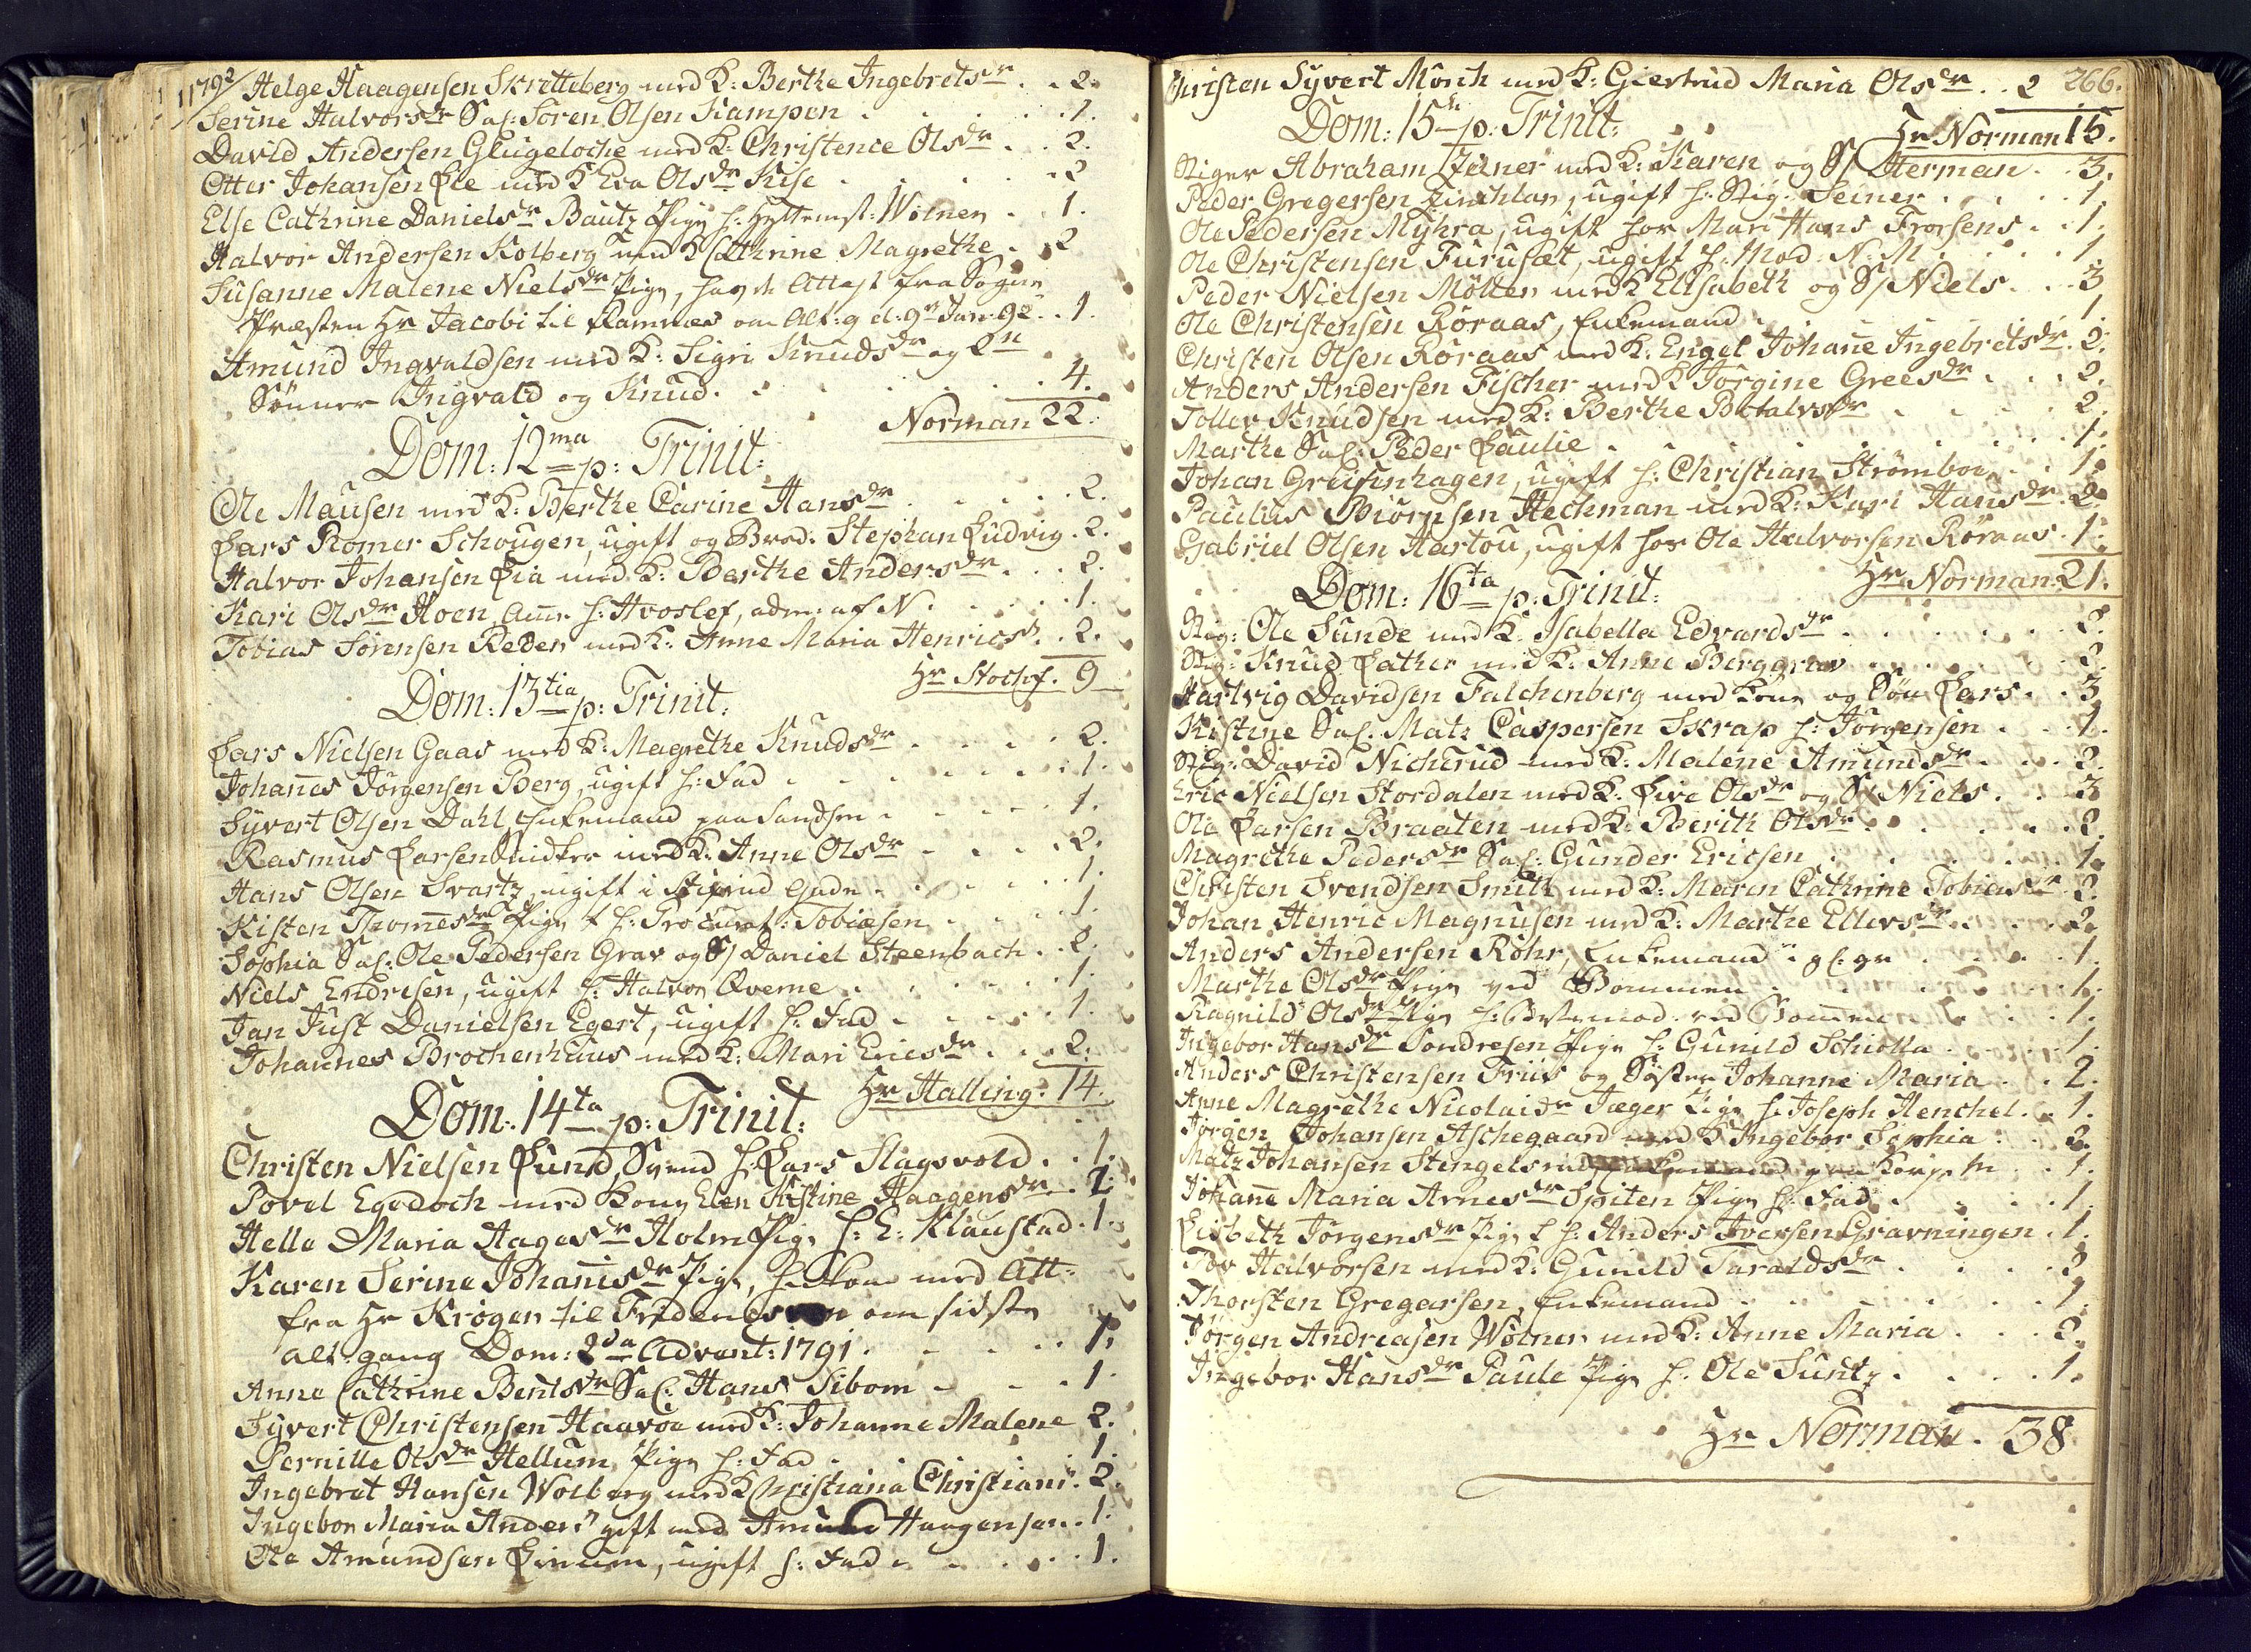 1792/ Helge Haagensen Skretteberg med K: Berthe Ingebretsdr . . 2.
Serine Halvorsdr Sal: Soren Olsen Kampen . . . 1.
David Andersen Glugeloche med K: Christence Olsdr . . 2.
Otter Johansen Lie med K Eva Olsdr Kise . . . 2
Else Cathrine Danielsdr Bautz Pige h: Hyttemst: Wolner . 1.
Halvor Andersen Kolberg med K Cathrine Magrethe . 2
Susanne Malene Nielsdr Pige, havde Attest fra Sogne
Præsten Hr Jacobi til Ramnæs om Alt: g d: 9de Jan: 92 . 1.
Amund Ingvaldsen med K: Sigri Knudsdr og 2n
Sönner Ingvald og Knud . . . 4.
Norman 22.
Dom: 12ma p: Trinit:
Ole Mausen med K: Berthe Carine Hansdr . . . 2.
Lars Romer Schougen, ugift og Brod: Stephan Ludvig . 2.
Halvor Johansen Lia med K: Berthe Andersdr . . . 2.
Kari Olsdr Hoen, Ame h: Hvoslef, adm: af N . . . 1.
Tobias Sörensen Reder med K: Anne Maria Henricsd. . 2.
Hr Stochf. 9
Dom: 13tia p: Trinit:
Lars Nielsen Gaas med K: Magrethe Knudsdr . . . 2.
Johanes Jörgensen Berg, ugift h: Fad . . . 1.
Syvert Olsen Dahl Enkemand paa Sandsen . . . 1.
Rasmus Larsen med K: Anne Olsdr . . . 2.
Hans Olsen Svartz, ugift i Gade . . . 1.
Kisten Thomesdr Pige h: Procurat: Tobiesen . . . 1.
Sophia Sal: Ole Pedersen Grav og S/ Daniel Steenbach . . 2.
Niels Endresen, ugift h: Halvor Qverne . . . 1.
Jan Just Danielsen Egert, ugift h: Fad . . . 1.
Johannes Brochenhuus med K: Mari Ericsdr . . . 2.
Hr Halling: 14.
Dom: 14ta p: Trinit:
Christen Nielsen Lund, Svend h: Lars Slagsvold . . 1.
Povel Egedoch med Kone Elen Kistine Haagensdr . 2.
Helle Maria Aagesdr Holm Pige h: E: Klaustad . 1.
Karen Serine Johanisdr Pige, med Att:
fra Hr Kröger til om sidste
alt: gang Dom: 2da Advent: 1791 . . . 1.
Anne Cathrine Bentsdr Sal: Hans Sibom . . . 1.
Syvert Christensen Haavoe med K: Johanne Malene 2.
Pernille Olsdr Hellum, Pige h: Fad . . . 1.
Ingebret Hansen Wolberg med K Christiana Christiani . 2.
Ingebor Maria Anders" gift med Amund Haagensen . 1.
Ole Amundsen, ugift h: Fad . . . 1.
Christen Syvert Mönch med K: Giertrud Maria Olsdr . . 2 266.
Dom: 15de p: Trinit:
Hr Norman 15.
Stiger Abraham Feiner med K: Karen og S/ Herman . . 3.
Peder Gregersen, ugift h: Stig: Seiner . . . 1.
Ole Pedersen Myhra, ugift hos Mari Hans Frorsens . . 1.
Ole Christensen Furusæt, ugift h: Mod: N: M . . . 1
Peder Nielsen Möller med K Elisabeth og S/ Niels . . 3
Ole Christensen Röraas, Enkemand . . . 1.
Christen Olsen Röraas med K: Engel Johane Ingebretsdr . 2.
Anders Andersen Fischer med K Jörgine Greesdr . . . 2.
Tollev Knudsen med K: Berthe Botalvsdr . . . 2.
Marthe Sal: Peder Paulie . . . 1.
Johan Greisenhagen, ugift h: Christian Strömboe . . 1.
Paulus Biörnsen Hechman med K: Kari Hansdr . 2.
Gabriel Olsen Hartou, ugift hos Ole Halvorsen Röraas . 1.
Hr Norman 21.
Dom: 16ta p: Trinit:
Stig: Ole Sunde med K: Isabella Edvardsdr . . . 2.
Stig: Knud Lather med K: Anne Berggrav . . . 2.
Hartvig Davidsen Falchenberg med Kone og Sön Lars . . 3
Kistine Sal: Matz Caspersen Skrap h: Jörgensen . . . 1.
Stig: David Nicherud med K: Malene Amundsdr . . . 2.
Eric Nielsen Stordalen med K: Live Olsdr og S/ Niels . . 3
Ole Larsen Braaten med K: Berith Olsdr . . . 2.
Magrethe Pedersdr Sal: Gunder Ericsen . . . 1.
Christen Svendsen Smith med K: Maren Cathrine Tobiasdr . 2.
Johan Henric Magnusen med K: Marthe Ellevsdr . . . 2.
Anders Andersen Röhr, Enkemand . . . 1.
Marthe Olsdr Pige ved Bommen . . . 1.
Ragnild Olsdr Pige h: Bestemod: ved Bommen . . . 1.
Ingebor Hansdr Sondresen Pige h: Gunild Schiolla . . . 1.
Anders Christensen Friis og Söster Johanne Maria . . 2.
Anne Magrethe Nicolaidr Jæger Pige h: Joseph Henchel . . 1.
Jörgen Johansen Aschegaard med K Ingebor Sophia . . 2.
Matz Johansen Stengelsrud . . 1.
Johane Maria Arnesdr Spiten Pige h: Fad . . . 1.
Lisbeth Jörgensdr Pige h: Anders Iversen Gravningen . 1.
Tov Halvorsen med K: Gunild Taraldsdr . . . 2
Thorsten Gregarsen, Enkemand . . . 1.
Jörgen Andreasen Wolner med K: Anne Maria . . . 2.
Ingebor Hansdr Paule Pige h: Ole Suntz . . . 1.
Hr Norman . 38